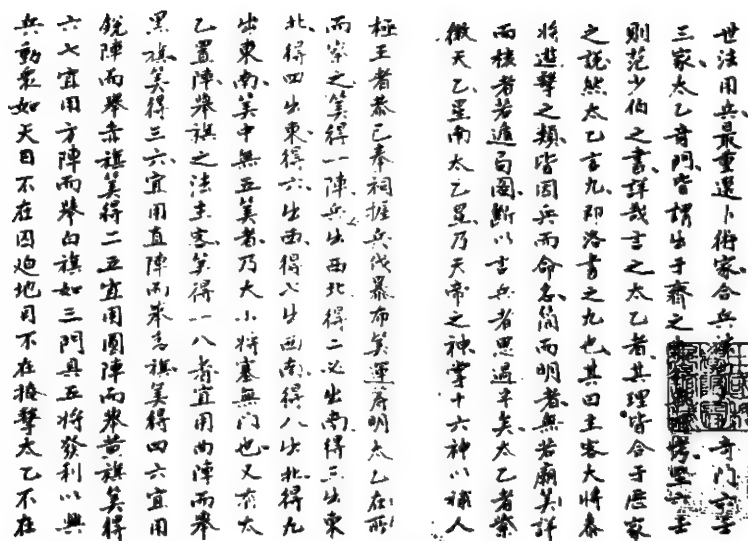 世法用兵最重選卜術家合兵法奇門六壬
三家太乙奇門皆謂出于齊之
則范少伯之書詳哉言之太乙者其理皆合于歷家
之說然太乙言九即洛書之九也其曰主客大將參
將遊擊之類皆因兵而命名簡而明者無若廟算詳
而核者若遁局圖斷以古兵者思過半矣太乙者紫
微天乙星南太乙星乃天帝之神掌十六神以福人
極王者恭己奉祠握兵伐暴布算運籌明太乙在所
而察之算得一陣兵出西北得二必出南得三出東
北得四出東得六出西得七出西南得八出北得九
出東南算中無五算者乃大小將塞無門也又太
乙置陣舉旗之法主客算得一八者宜用陣而舉
黑旗算得三六宜用直陣而舉青旗算得四六宜用
銳陣而舉赤旗算得二五宜用圓陣而舉黃旗算得
六七宜用方陣而舉白旗如三門具五將發利以興
兵動眾如天目不在囚迫地目不在掩擊太乙不在